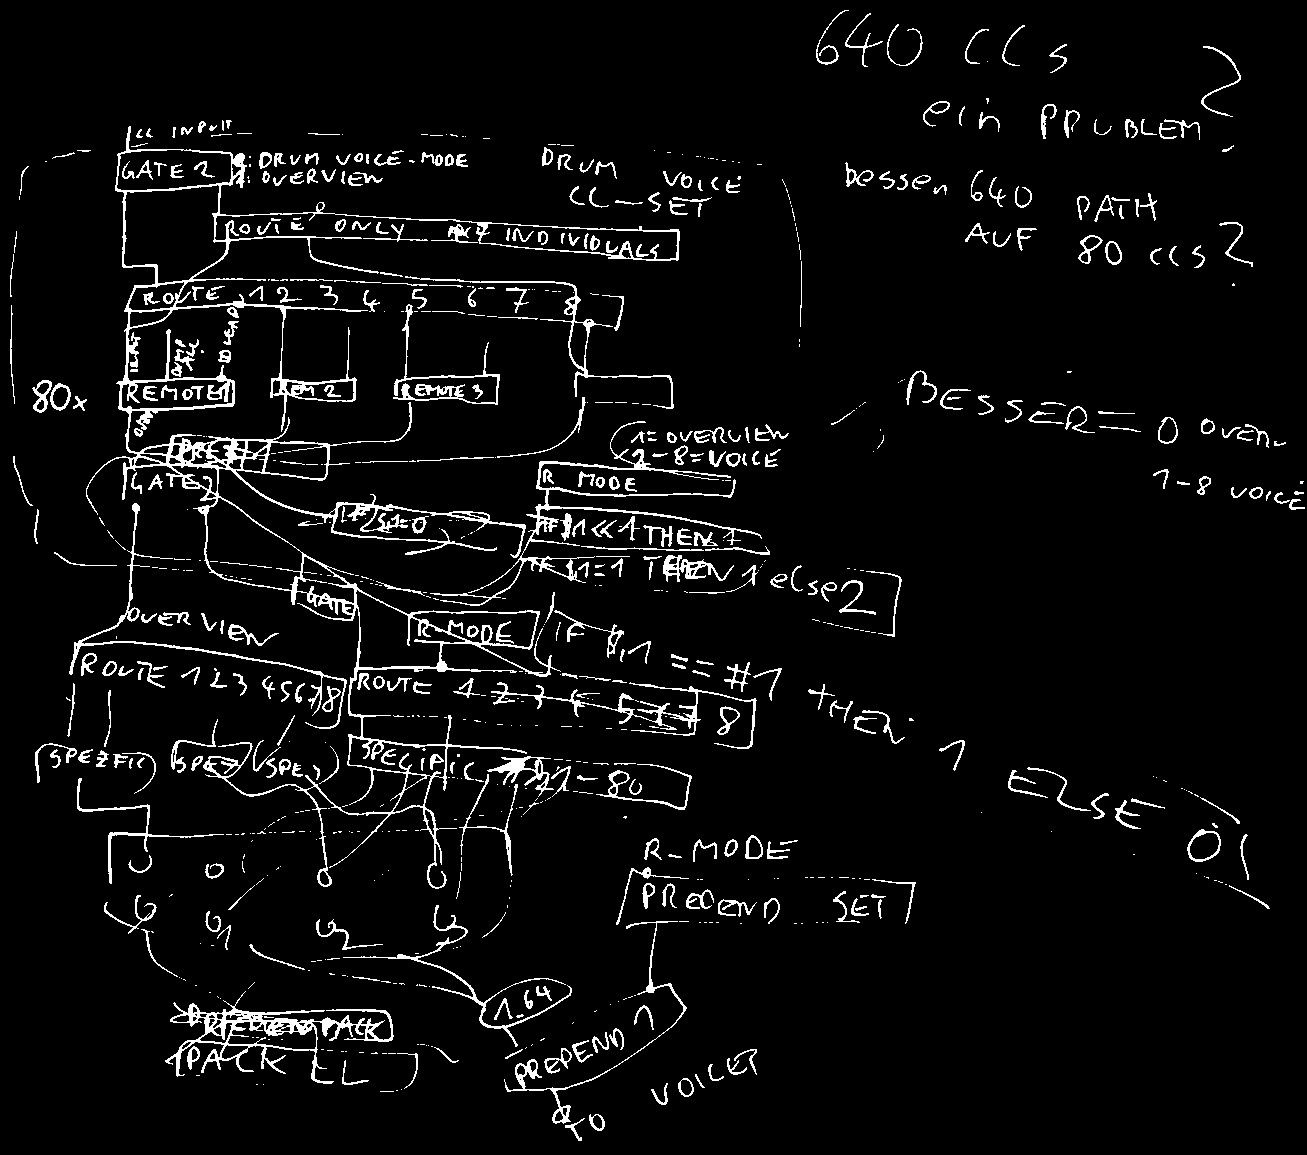 640 CCs
ein PROBLEM?
besser 640 PATH
AUF 80 CCs?
CC INPUT
GATE 2
: DRUM VOICE-MODE
: OVERVIEW
DRUM VOICE
CC-SET
ROUTE ONLY INDIVIDUALS
ROUTE 1 2 3 4 5 6 7 8
DUMP
ALL
ID LEAD
80x
REMOTE 1
REM 2
REMOTE 3
BESSER = 0 OVERV
1-8 VOICE
1=OVERVIEW
2-8=VOICE
GATE 2
R MODE
IF $1=0
IF $1<<1 THEN 1
IF $1=1 THEN 1 else 2
GATE
OVERVIEW
R-MODE
IF $i1 == #1 THEN 1 ELSE 0
ROUTE 1 2 3 4 5 6 7 8
ROUTE 1 2 3 4 5 6 7 8
SPEZFIC
SPEZ
SPEZ
SPECIFIC 1-80
R-MODE
PREPEND SET
1-64
PACK
PACK EL
PREPEND 1
TO VOICET